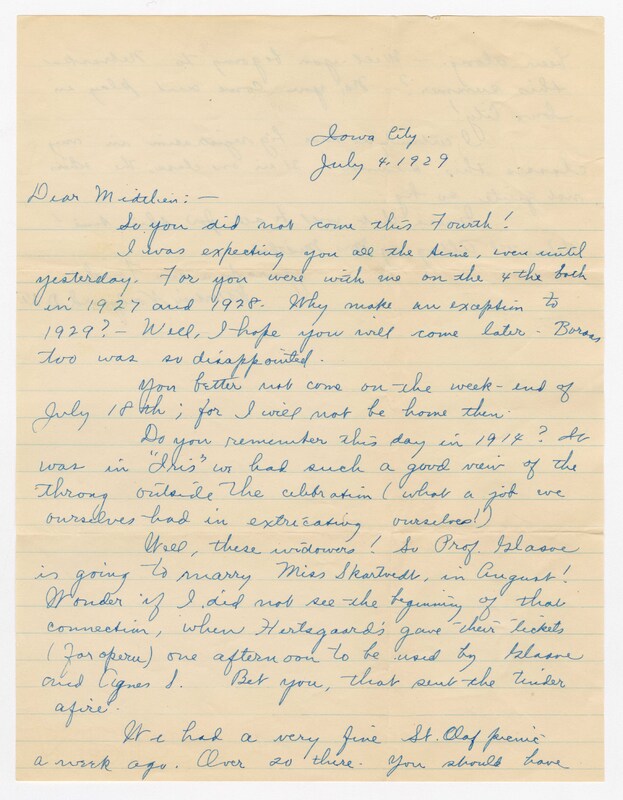 Iowa City
July 4, 1929
Dear Midtlien: —
So you did not come this Fourth!
I was expecting you all the time, even until
yesterday. For you were with me on the 4 the both
in 1927 and 1928. Why make an exception to
1929? — Well, I hope you will come later - Boraas
too was so disappointed.
You better not come on the week-end of
July 18th; for I will not be home then.
Do you remember this day in 1914? It
was in "Iris" we had such a good view of the
throng outside the celebration (what a job we
ourselves had in extricating ourselves!)
Well, these widowers! So Prof. Glasoe
is going to marry Miss Skartvedt, in August!
Wonder if I did not see the beginning of that
connection, when Hertsgaard's gave their tickets
(for opera) one afternoon to be used by Glasoe
and Agnes S. Bet you, that sent the tinder
afire.
We had a very fine St. Olaf picnic
a week ago. Over 20 there. You should have